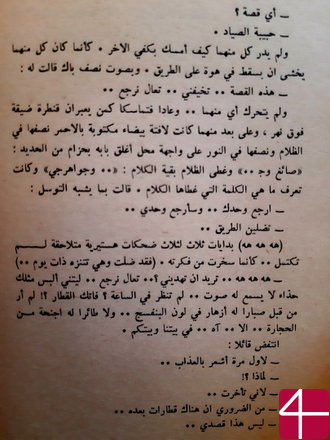 ــ أي قصة ؟
ــ حبيبة الصياد .
ولم يدر كل منهما كيف أمسك بكفي الآخر . كأنما كان كل منهما
يخشى ان يسقط في هوة على الطريق . وبصوت نصف باك قالت له :
ــ هذه القصة .. تخيفني .. تعال نرجع ..
ولم يتحرك أي منهما .. وعادا فتماسكا كمن يعبران قنطرة ضيقة
فوق نهر ، وعلى بعد منهما كانت لافتة بيضاء مكتوبة بالاحمر نصفها في
الظلام ونصفها في النور على واجهة محل أغلق بابه بحزام من الحديد :
«صائغ وجـ ..» وغطى الظلام بقية الكلام : «.. وجواهرجي» وكانت
تعرف ما هي الكلمة التي غطاها الكلام . قالت بما يشبه التوسل :
ــ ارجع وحدك .. وسأرجع وحدي ..
ــ تضلين الطريق ..
(هه هه هه) بدايات ثلاث لثلاث ضحكات هستيرية متلاحقة لـــم
تكتمل .. كأنما سخرت من فكرته . (فقد ضلت وهي تتنزه ذات يوم ..)
ــ هه هه هه .. تريد ان تهديني؟.. تعال نرجع .. ليتني ألبس مثلك
حذاء لا يسمع له صوت .. لم تنظر في الساعة ؟ فاتك القطار ؟! لم أر
من قبل صبارا له أزهار في لون البنفسج .. ولا طائرا له اجنحة مــن
الحجارة .. الا .. آه .. في بيتنا وبيتكم .
انتفض قائلا :
ــ لاول مرة أشعر بالعذاب ..
ــ لماذا ؟!
ــ لاني تأخرت ..
ــ من الضروري ان هناك قطارات بعده ..
ــ ليس هذا قصدي ..
4